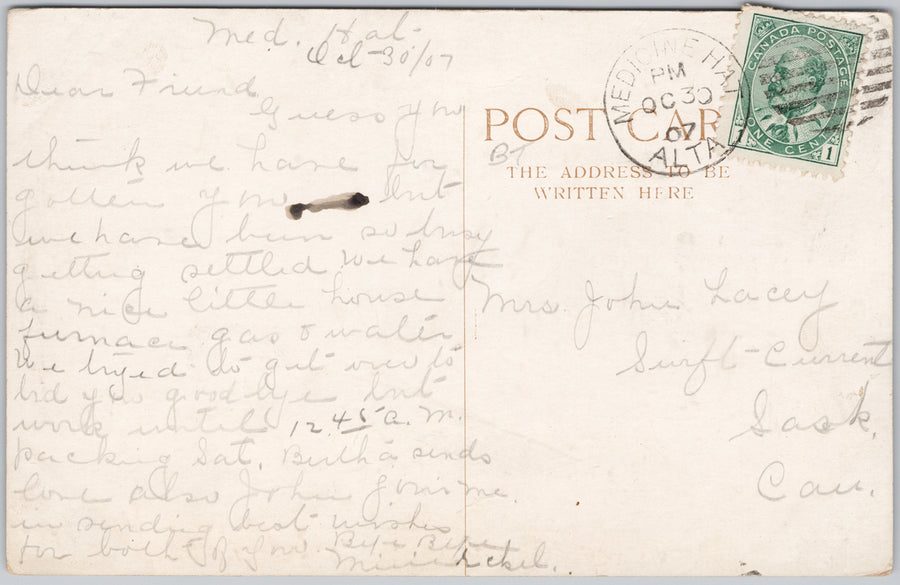 Med. Hat
Oct 30/07
Dear Friend
Guess you
think we have for
gotten you but
we have been so busy
getting settled we have
a nice little house
furnace gas & water
We tryed to get over to
bid you goodbye but
work until 12.45 a.m.
packing Sat. Birtha sends
love also John joins me
in sending best wishes
for both of you. Bye Bye
MEDICINE HAT
PM
OC 30
07
ALTA
CANADA POSTAGE
ONE CENT
1
POST CAR
THE ADDRESS TO BE
WRITTEN HERE
Mrs John Lacey
Swift-Current
Sask.
Can.